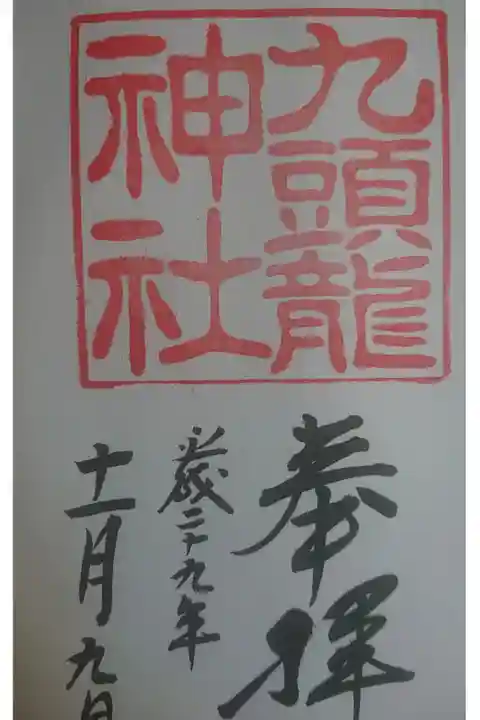 九頭龍
神社
奉拝
平成二十九年
十一月九日